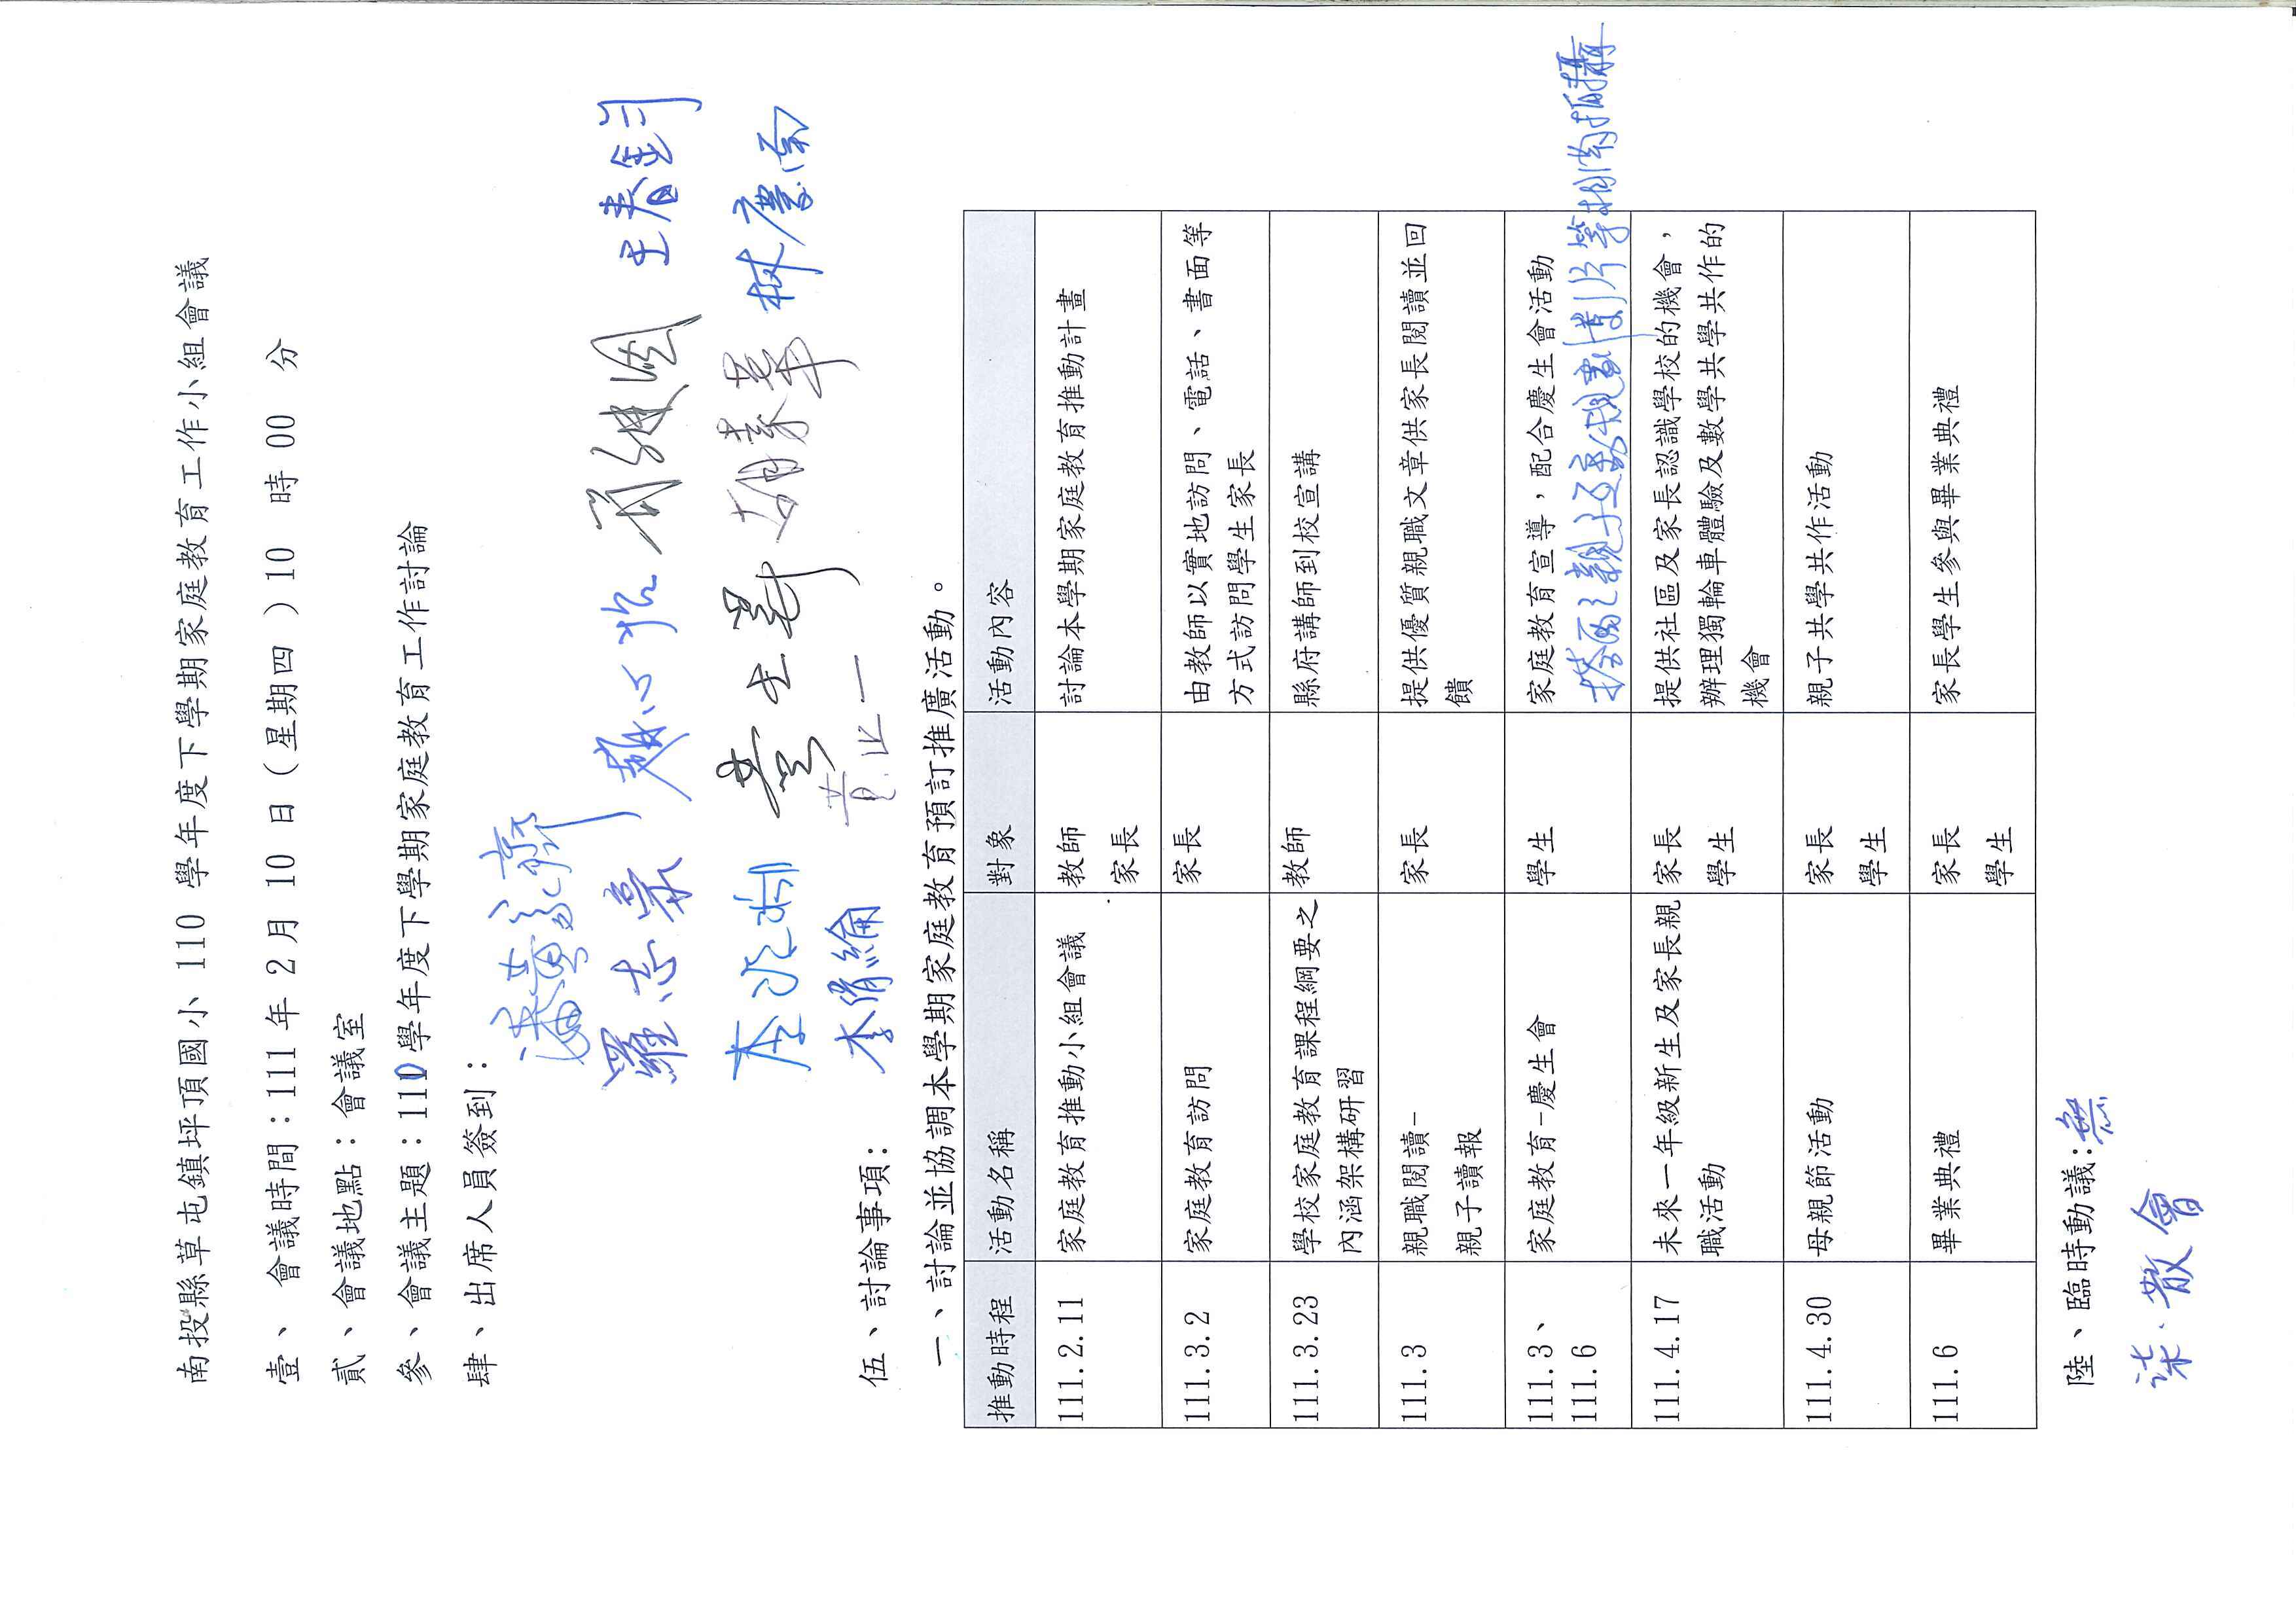 南投縣草屯鎮坪頂國小 110 學年度下學期家庭教育工作小組會議
壹、 會議時間：111 年 2 月 10 日（星期四）10 時 00 分
貳、會議地點：會議室
參、會議主題：110 學年度下學期家庭教育工作討論
肆、出席人員簽到：
羅志
王春
李 林慶南
李 黃
伍、討論事項：
一、討論並協調本學期家庭教育預訂推廣活動。
推動時程 活動名稱 對象 活動內容
111.2.11 家庭教育推動小組會議 教師 家長 討論本學期家庭教育推動計畫
111.3.2 家庭教育訪問 家長 由教師以實地訪問、電話、書面等
方式訪問學生家長
111.3.23 學校家庭教育課程綱要之 教師 縣府講師到校宣講
內涵架構研習
111.3 親職閱讀- 家長 提供優質親職文章供家長閱讀並回
親子讀報 饋
111.3、 家庭教育-慶生會 學生 家庭教育宣導，配合慶生會活動
111.6 親子
111.4.17 未來一年級新生及家長親 家長 提供社區及家長認識學校的機會，
職活動 學生 辦理獨輪車體驗及數學共學共作的
機會
111.4.30 母親節活動 家長 學生 親子共學共作活動
111.6 畢業典禮 家長 學生 家長學生參與畢業典禮
陸、臨時動議：無
柒、散會